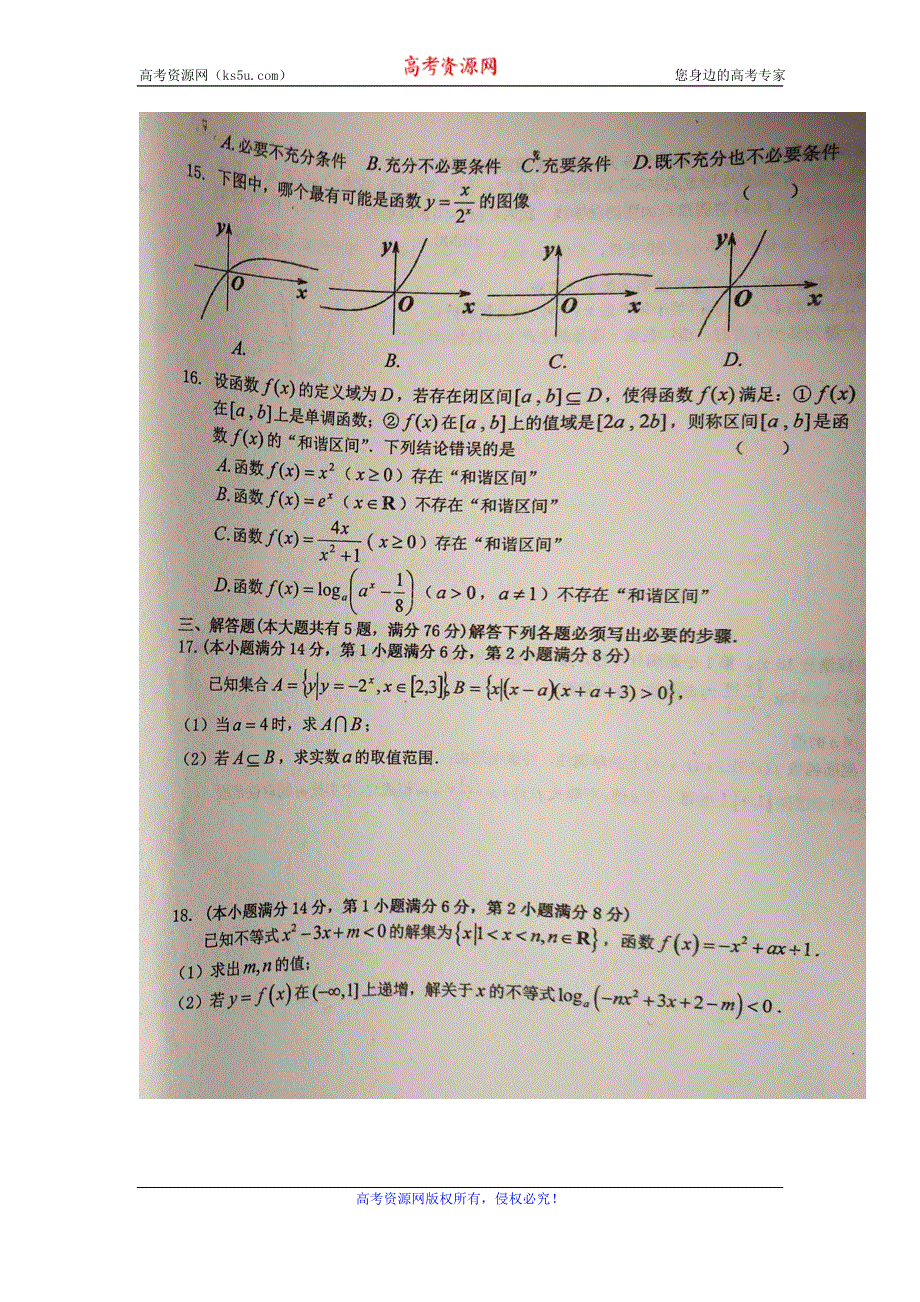 高考资源网（ks5u.com）
高考资源网
您身边的高考专家
A.必要不充分条件 B.充分不必要条件 C.充要条件 D.既不充分也不必要条件
15. 下图中，哪个最有可能是函数 y = x/2^x 的图像 （ ）
y O x y O x y O x y O x
A. B. C. D.
16. 设函数 f(x) 的定义域为 D，若存在闭区间 [a,b] ⊆ D，使得函数 f(x) 满足：① f(x)
在 [a,b] 上是单调函数；② f(x) 在 [a,b] 上的值域是 [2a,2b]，则称区间 [a,b] 是函
数 f(x) 的“和谐区间”．下列结论错误的是 （ ）
A.函数 f(x) = x^2（x ≥ 0）存在“和谐区间”
B.函数 f(x) = e^x（x ∈ R）不存在“和谐区间”
C.函数 f(x) = 4x/(x^2+1)（x ≥ 0）存在“和谐区间”
D.函数 f(x) = log_a(a^x − 1/8)（a > 0，a ≠ 1）不存在“和谐区间”
三、解答题(本大题共有5题，满分76分)解答下列各题必须写出必要的步骤．
17.(本小题满分14分，第1小题满分6分，第2小题满分8分)
已知集合 A = {y|y = −2^x, x ∈ [2,3]}, B = {x|(x−a)(x+a+3) > 0}，
(1)当 a = 4 时，求 A∩B；
(2)若 A ⊆ B，求实数 a 的取值范围．
18. (本小题满分14分，第1小题满分6分，第2小题满分8分)
已知不等式 x^2 − 3x + m < 0 的解集为 {x|1 < x < n, n ∈ R}，函数 f(x) = −x^2 + ax + 1．
(1)求出 m,n 的值；
(2)若 y = f(x) 在 (−∞,1] 上递增，解关于 x 的不等式 log_a(−nx^2 + 3x + 2 − m) < 0．
高考资源网版权所有，侵权必究！